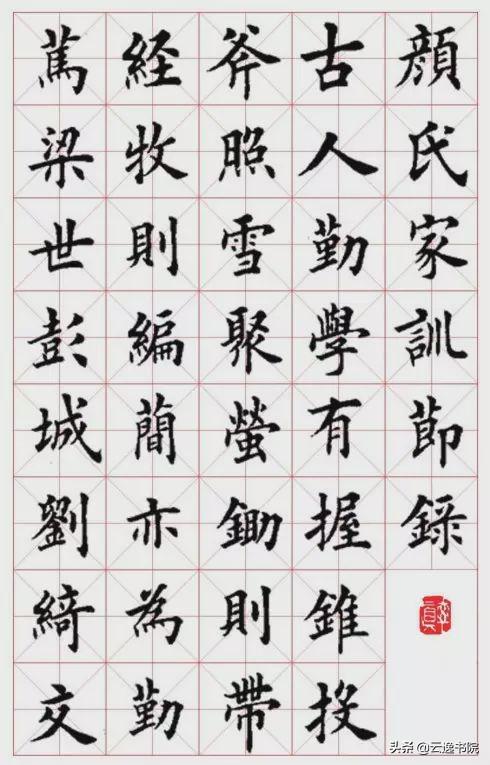 顔氏家訓節録
古人勤學有握錐投
斧照雪聚螢鋤則帶
経牧則編簡亦為勤
篤梁世彭城劉綺交
头条 @云逸书院